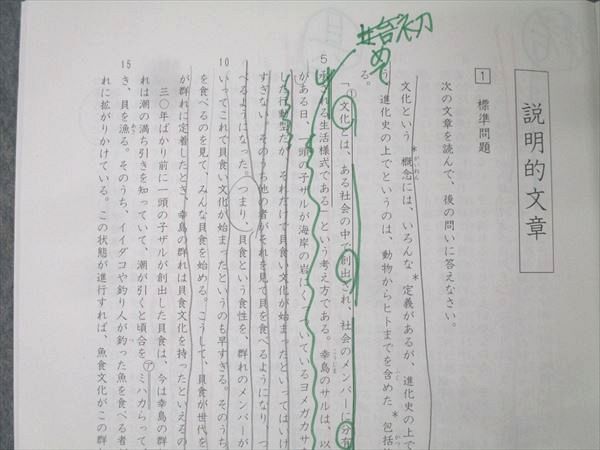 説明的文章
1 標準問題
次の文章を読んで、後の問いに答えなさい。
文化という*概念には、いろんな*定義があるが、進化史の上で
う 進化史の上でというのは、動物からヒトまでを含めた*包括
「①文化とは、ある社会の中で創出され、社会のメンバーに分布
5 承される生活様式である」という考え方である。幸島のサルは、以
がある日、一頭の子ザルが海岸の岩にくっついているヨメガカサを
した行動型だが、それだけで貝食い文化が始まったといってはいけ
すぎない。そのうち他の者がそれを見て貝を食べるようになり、つ
べるようになった。つまり、貝食という食性を、群れのメンバーが
10 いってこれで貝食い文化が始まったというのも早すぎる。そのうち
を食べるのを見て、みんな貝食を始める。こうして、貝食が世代を
が群れに定着したとき、幸島の群れは貝食文化を持ったといえるの
三〇年ばかり前に一頭の子ザルが創出した貝食は、今は幸島の群
れは潮の満ち引きを知っていて、潮が引くと頃合を㋐ミハカらって
15 き、貝を漁る。そのうち、イイダコや釣り人が釣った魚を食べる者
れに拡がりかけている。この状態が進行すれば、魚食文化がこの群
る。
初め